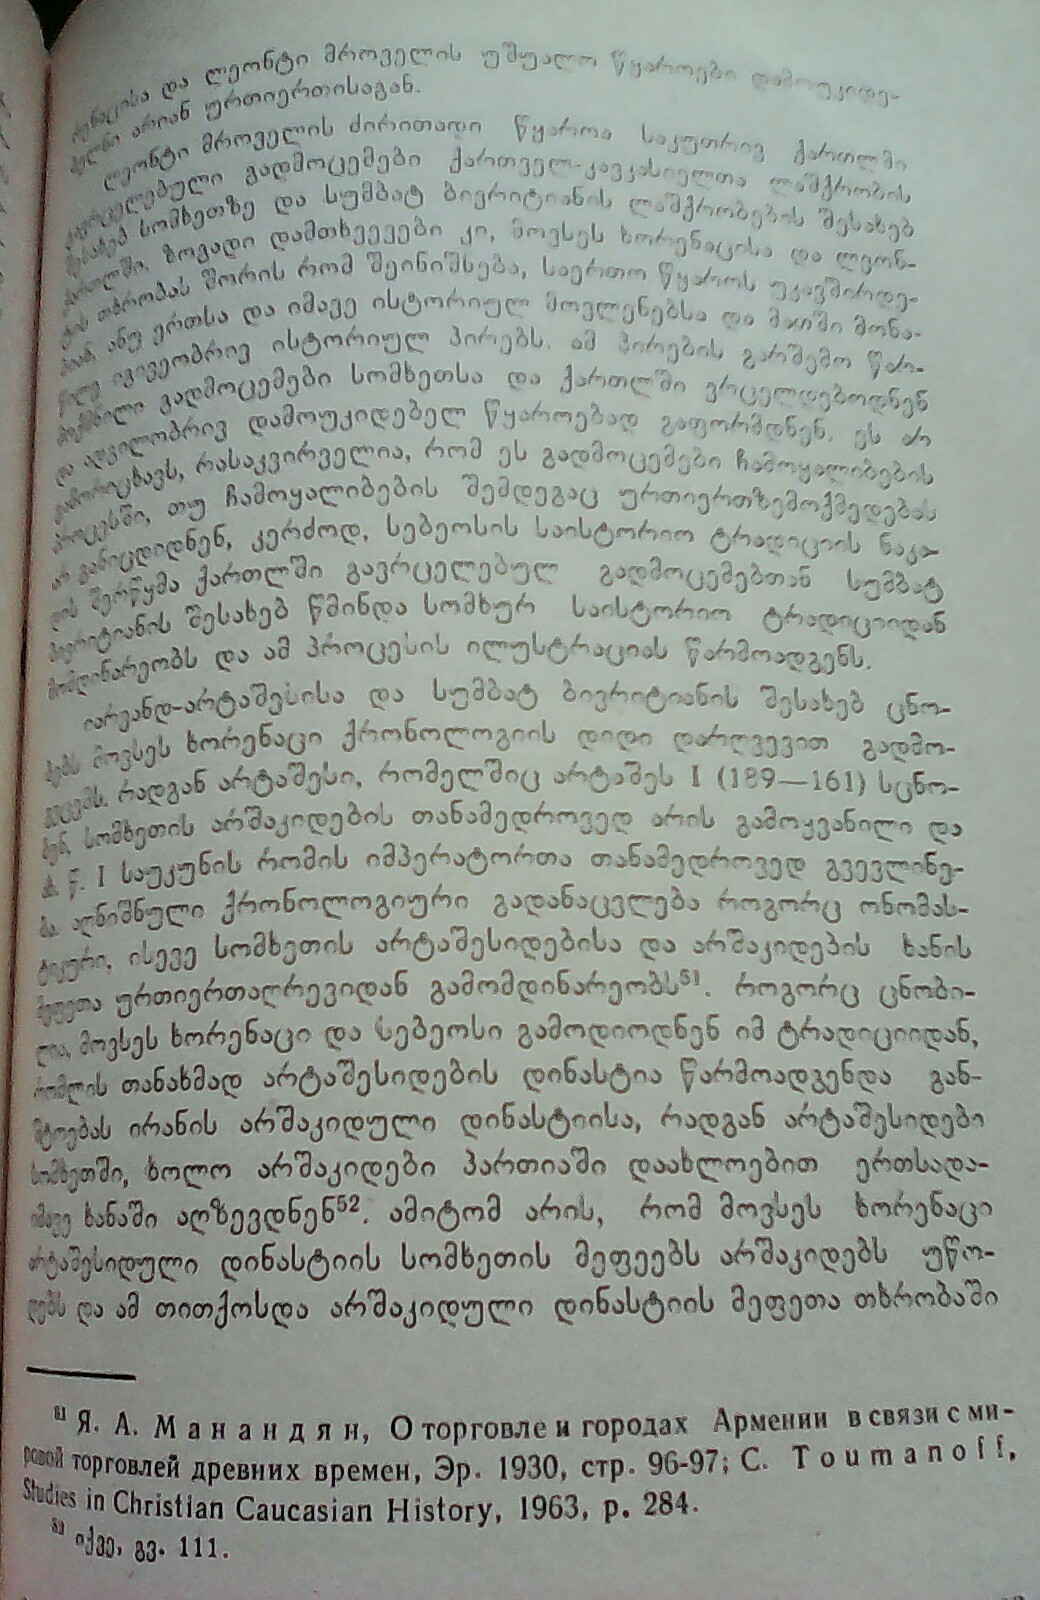 რენაცისა და ლეონტი მროველის უშუალო წყაროები დამოუკიდე-
ბელნი არიან ურთიერთისაგან.
ლეონტი მროველის ძირითადი წყაროა საკუთრივ ქართლში
გავრცელებული გადმოცემები ქართველ-კავკასიელთა ლაშქრობის
შესახებ სომხეთზე და სუმბატ ბივრიტიანის ლაშქრობების შესახებ
ქართლში. ზოგადი დამთხვევები კი, მოვსეს ხორენაცისა და ლეონ-
ტის თხრობას შორის რომ შეინიშნება, საერთო წყაროს უკავშირდე-
ბიან, ანუ ერთსა და იმავე ისტორიულ მოვლენებსა და მათში მონა-
წილე იგივეობრივ ისტორიულ პირებს. ამ პირების გარშემო წარ-
მოქმნილი გადმოცემები სომხეთსა და ქართლში ვრცელდებოდნენ
და ადგილობრივ დამოუკიდებელ წყაროებად გაფორმდნენ. ეს არ
გამორიცხავს, რასაკვირველია, რომ ეს გადმოცემები ჩამოყალიბების
პროცესში, თუ ჩამოყალიბების შემდეგაც ურთიერთზემოქმედებას
არ განიცდიდნენ, კერძოდ, სებეოსის საისტორიო ტრადიციის ნაკა-
დის შერწყმა ქართლში გავრცელებულ გადმოცემებთან სუმბატ
ბივრიტიანის შესახებ წმინდა სომხურ საისტორიო ტრადიციიდან
მომდინარეობს და ამ პროცესის ილუსტრაციას წარმოადგენს.
იარვანდ-არტაშესისა და სუმბატ ბივრიტიანის შესახებ ცნო-
ბებს მოვსეს ხორენაცი ქრონოლოგიის დიდი დარღვევით გადმო-
გვცემს. რადგან არტაშესი, რომელშიც არტაშეს I (189—161) სცნო-
ბენ, სომხეთის არშაკიდების თანამედროვედ არის გამოყვანილი და
ახ. წ. I საუკუნის რომის იმპერატორთა თანამედროვედ გვევლინე-
ბა. აღნიშნული ქრონოლოგიური გადანაცვლება როგორც ონომას-
ტიკური, ისევე სომხეთის არტაშესიდებისა და არშაკიდების ხანის
მეფეთა ურთიერთაღრევიდან გამომდინარეობს⁵¹. როგორც ცნობი-
ლია, მოვსეს ხორენაცი და სებეოსი გამოდიოდნენ იმ ტრადიციიდან,
რომლის თანახმად არტაშესიდების დინასტია წარმოადგენდა გან-
შტოებას ირანის არშაკიდული დინასტიისა, რადგან არტაშესიდები
სომხეთში, ხოლო არშაკიდები პართიაში დაახლოებით ერთსადა-
იმავე ხანაში აღზევდნენ⁵². ამიტომ არის, რომ მოვსეს ხორენაცი
არტაშესიდული დინასტიის სომხეთის მეფეებს არშაკიდებს უწო-
დებს და ამ თითქოსდა არშაკიდული დინასტიის მეფეთა თხრობაში
⁵¹ Я. А. Манандян, О торговле и городах Армении в связи с ми-
ровой торговлей древних времен, Эр. 1930, стр. 96-97; C. Toumanoff,
Studies in Christian Caucasian History, 1963, p. 284.
⁵² იქვე, გვ. 111.